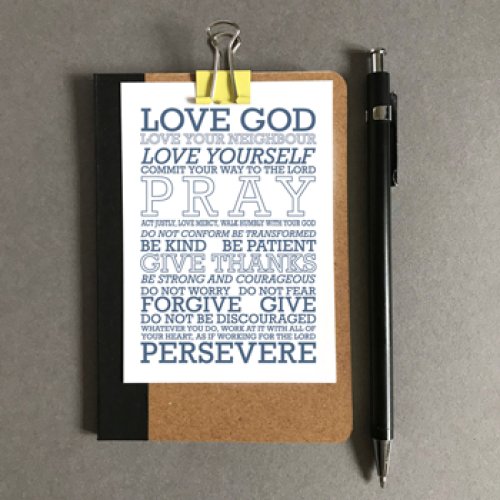 LOVE GOD
LOVE YOUR NEIGHBOUR
LOVE YOURSELF
COMMIT YOUR WAY TO THE LORD
PRAY
ACT JUSTLY, LOVE MERCY, WALK HUMBLY WITH YOUR GOD
DO NOT CONFORM BE TRANSFORMED
BE KIND BE PATIENT
GIVE THANKS
BE STRONG AND COURAGEOUS
DO NOT WORRY DO NOT FEAR
FORGIVE GIVE
DO NOT BE DISCOURAGED
WHATEVER YOU DO, WORK AT IT WITH ALL OF
YOUR HEART, AS IF WORKING FOR THE LORD
PERSEVERE